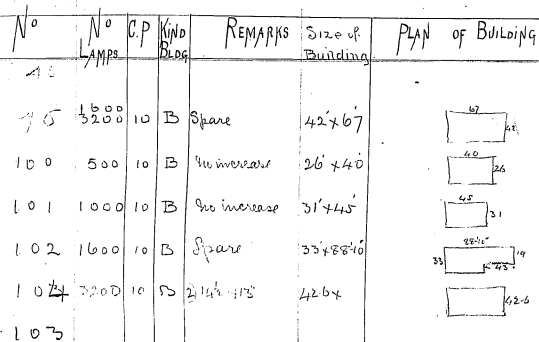 No No LAMPS C.P KIND BLDG REMARKS Size of Building PLAN OF BUILDING
1600
3200 10 B Spare 42' x 67' 67 42
100 500 10 B No increase 26' x 40' 40 26
101 1000 10 B No increase 31' x 45' 45 31
102 1600 10 B Spare 33' x 88'-10" 88-10" 33 19 43
3200 10 B 42-6 x 42-6
103